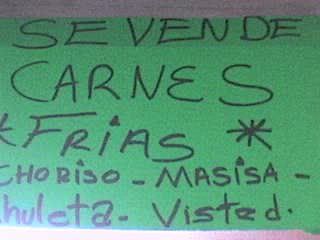 SE VENDE
CARNES
*FRiAS *
CHORISO - MASiSA -
chuleta - Visted.